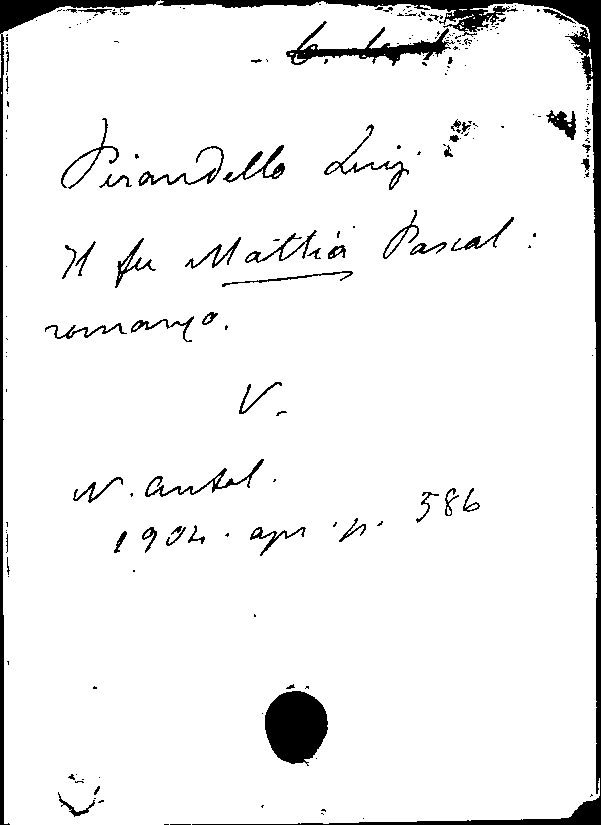 Pirandello Luigi
Il fu Mattia Pascal:
romanzo.
V.
N. Antol.
1904. apr. p. 586